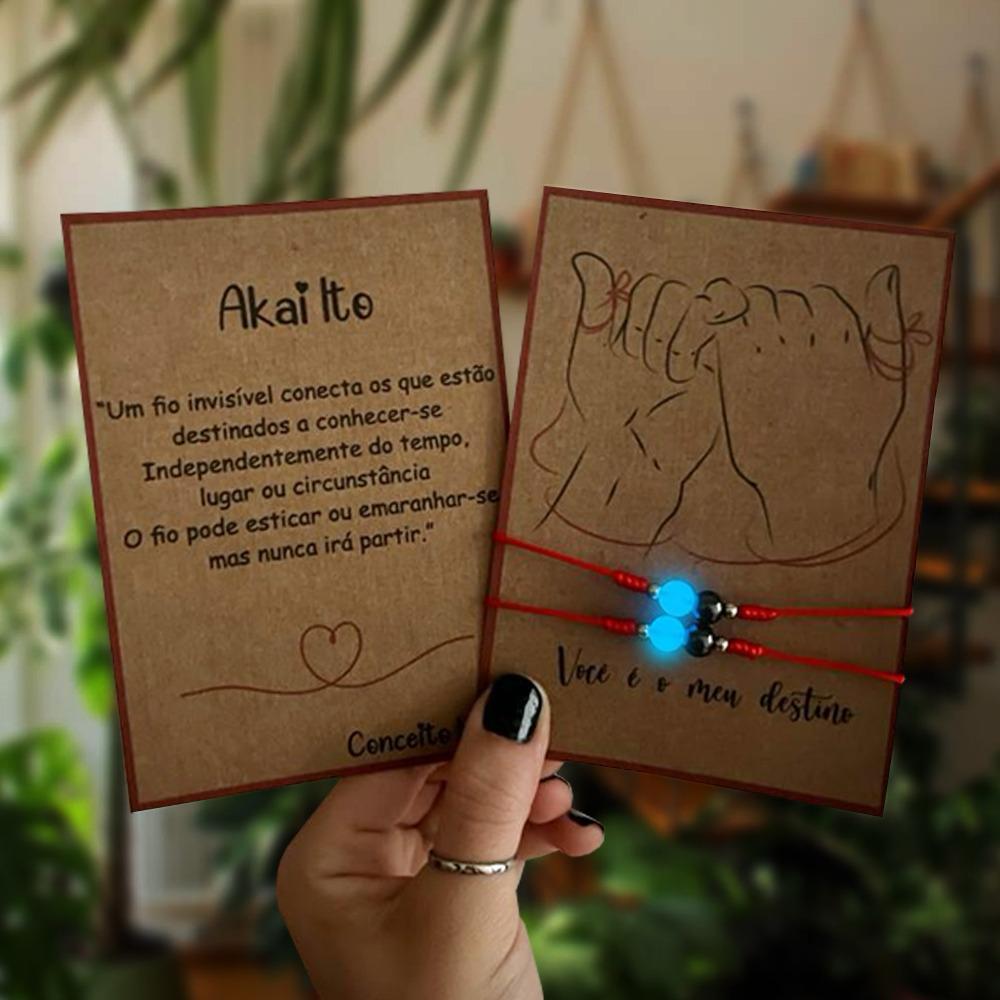 Akai Ito
"Um fio invisível conecta os que estão
destinados a conhecer-se
Independentemente do tempo,
lugar ou circunstância
O fio pode esticar ou emaranhar-se
mas nunca irá partir."
Conceito
Você é o meu destino